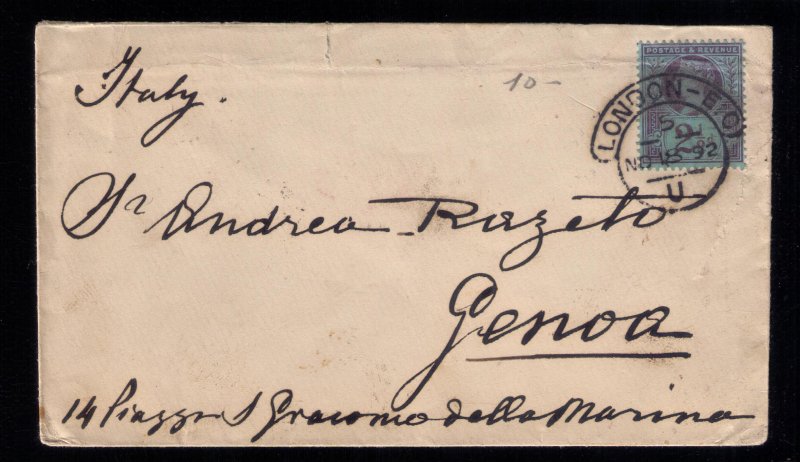 Italy.
10-
POSTAGE & REVENUE
LONDON-E.C
NO 18 92
U
Sr Andrea Razeto
Genoa
14 Piazza S Giacomo della Marina